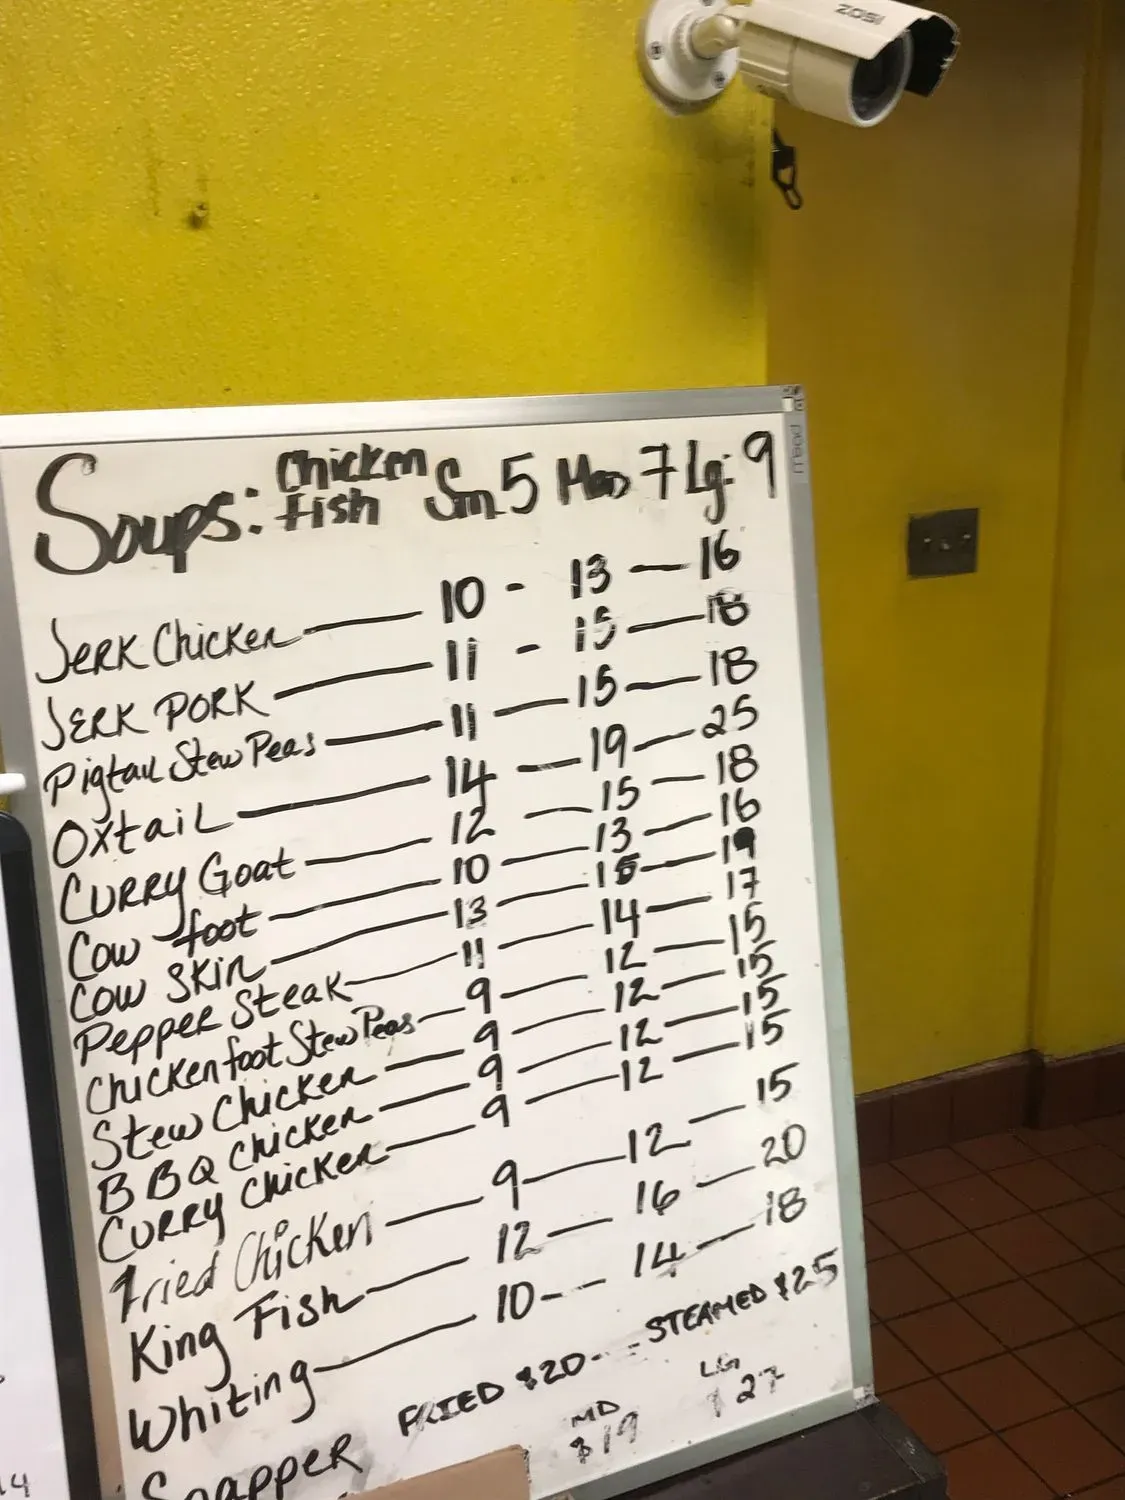 ZOSI
Soups: Chicken Fish Sm 5 Med 7 Lg. 9
JERK Chicken 10 - 13 - 16
JERK PORK 11 - 15 - 18
Pigtail Stew Peas 11 - 15 - 18
Oxtail 14 - 19 - 25
CURRY Goat 12 - 15 - 18
Cow foot 10 - 13 - 16
Cow Skin 13 - 15 - 19
Pepper Steak 11 - 14 - 17
Chicken foot Stew Peas 9 - 12 - 15
Stew Chicken 9 - 12 - 15
BBQ Chicken 9 - 12 - 15
CURRY Chicken 9 - 12 - 15
Fried Chicken 9 - 12 - 15
King Fish 12 - 16 - 20
Whiting 10 - 14 - 18
Snapper FRIED $20 - STEAMED $25
MD LG
$19 $27
14